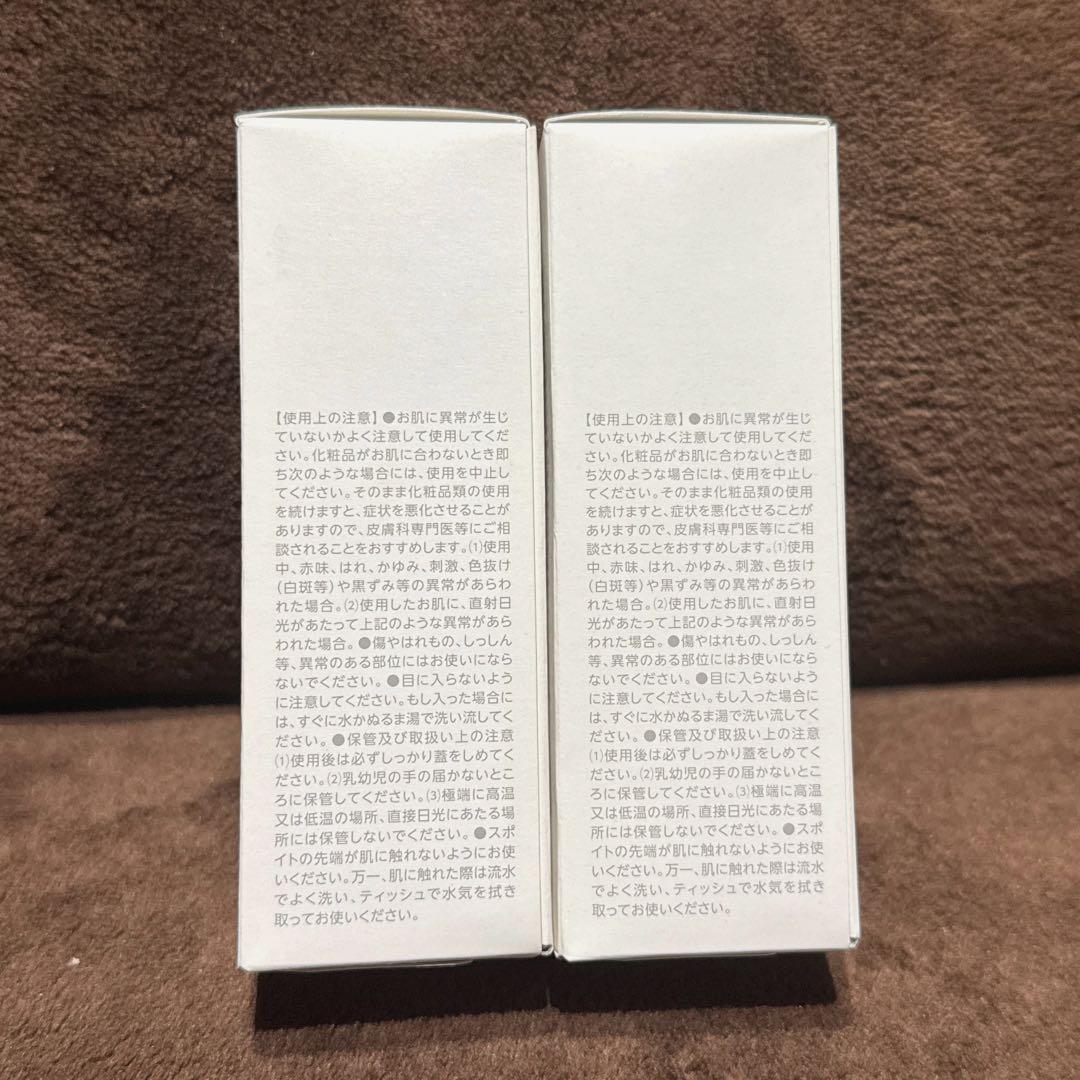 【使用上の注意】●お肌に異常が生じ
ていないかよく注意して使用してくだ
さい。化粧品がお肌に合わないとき即
ち次のような場合には、使用を中止し
てください。そのまま化粧品類の使用
を続けますと、症状を悪化させることが
ありますので、皮膚科専門医等にご相
談されることをおすすめします。(1)使用
中、赤味、はれ、かゆみ、刺激、色抜け
(白斑等)や黒ずみ等の異常があらわ
れた場合。(2)使用したお肌に、直射日
光があたって上記のような異常があら
われた場合。●傷やはれもの、しっしん
等、異常のある部位にはお使いになら
ないでください。●目に入らないよう
に注意してください。もし入った場合に
は、すぐに水かぬるま湯で洗い流してく
ださい。●保管及び取扱い上の注意
(1)使用後は必ずしっかり蓋をしめてく
ださい。(2)乳幼児の手の届かないとこ
ろに保管してください。(3)極端に高温
又は低温の場所、直接日光にあたる場
所には保管しないでください。●スポ
イトの先端が肌に触れないようにお使
いください。万一、肌に触れた際は流水
でよく洗い、ティッシュで水気を拭き
取ってお使いください。
【使用上の注意】●お肌に異常が生じ
ていないかよく注意して使用してくだ
さい。化粧品がお肌に合わないとき即
ち次のような場合には、使用を中止し
てください。そのまま化粧品類の使用
を続けますと、症状を悪化させることが
ありますので、皮膚科専門医等にご相
談されることをおすすめします。(1)使用
中、赤味、はれ、かゆみ、刺激、色抜け
(白斑等)や黒ずみ等の異常があらわ
れた場合。(2)使用したお肌に、直射日
光があたって上記のような異常があら
われた場合。●傷やはれもの、しっしん
等、異常のある部位にはお使いになら
ないでください。●目に入らないよう
に注意してください。もし入った場合に
は、すぐに水かぬるま湯で洗い流してく
ださい。●保管及び取扱い上の注意
(1)使用後は必ずしっかり蓋をしめてく
ださい。(2)乳幼児の手の届かないとこ
ろに保管してください。(3)極端に高温
又は低温の場所、直接日光にあたる場
所には保管しないでください。●スポ
イトの先端が肌に触れないようにお使
いください。万一、肌に触れた際は流水
でよく洗い、ティッシュで水気を拭き
取ってお使いください。